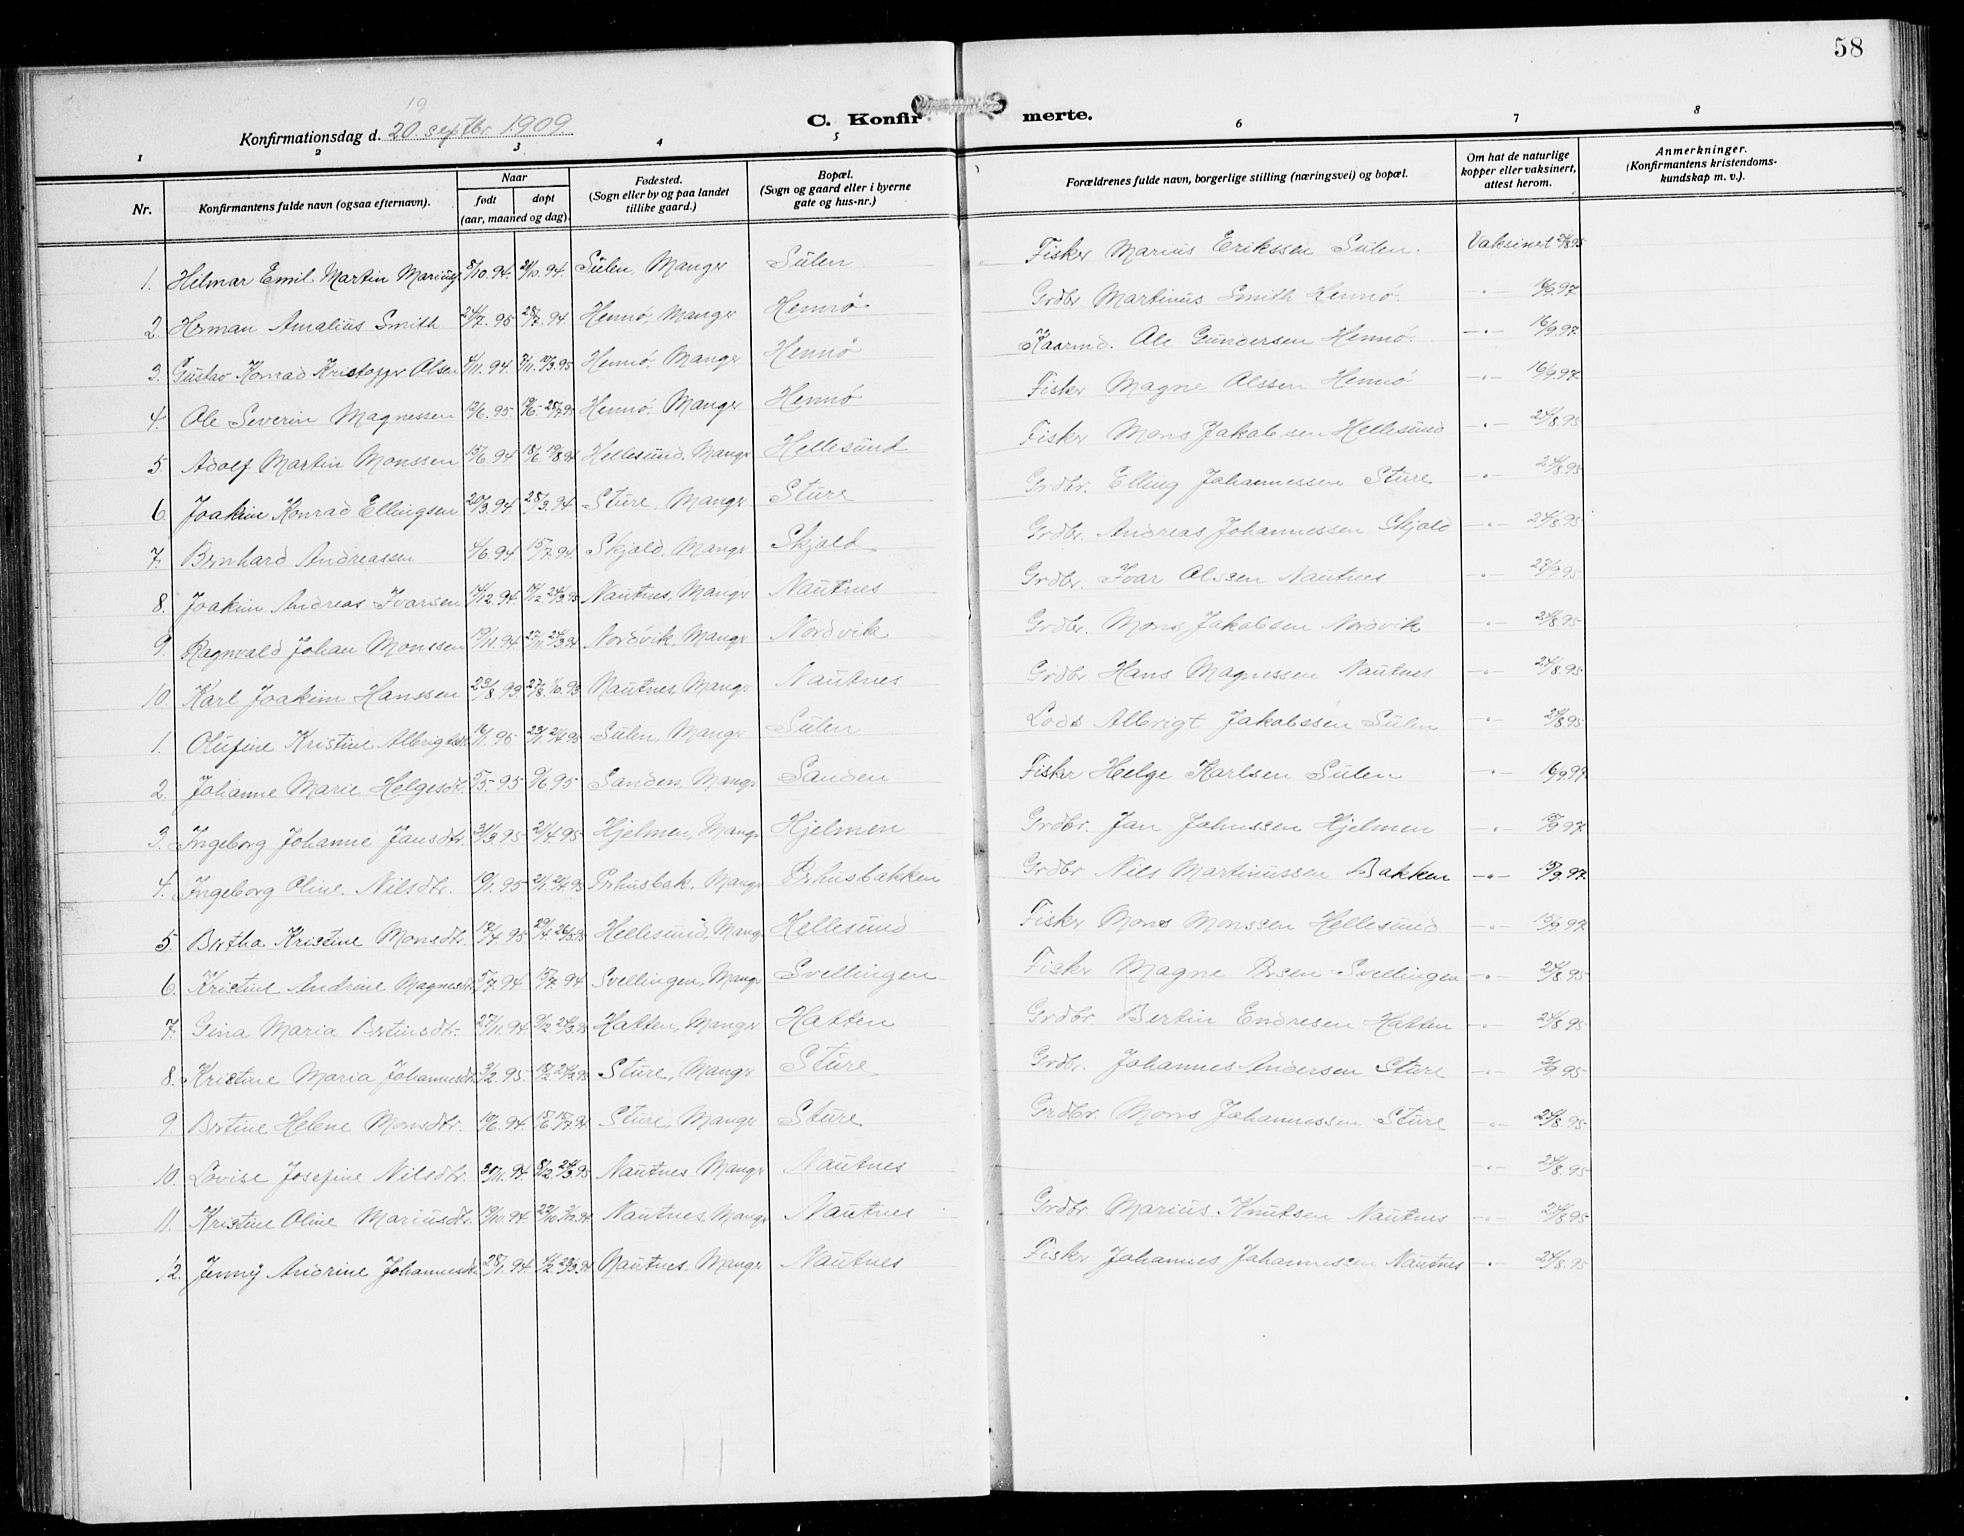 58
19
Konfirmationsdag d. 20. septbr. 1909
C. Konfirmerte.
1 2 3 4 5 6 7 8
Nr.
Konfirmantens fulde navn (ogsaa efternavn).
Naar
født døpt
(aar, maaned og dag).
Fødested.
(Sogn eller by og paa landet
tillike gaard.)
Bopæl.
(Sogn og gaard eller i byerne
gate og hus-nr.)
Forældrenes fulde navn, borgerlige stilling (næringsvei) og bopæl.
Om hat de naturlige
kopper eller vaksinert,
attest herom.
Anmerkninger.
(Konfirmantens kristendoms-
kundskap m. v.).
1. Hilmar Emil Martin 8/10.94. 21/10.94. Sülen, Manger Sülen Fisker Marius Erikssen Sülen. Vaksinert 24/8.95
2. Herman Amalius Smith 24/7.95 28/7.94 Hennø, Manger Hennø Grdbr Martinus Smith Hennø. -"- 16/9.97
3. Gustav Konrad Kristoffer Olsen 4/11.94. Hennø, Manger Hennø Ole Gundersen Hennø. -"- 16/9.97
4. Ole Severin Magnessen 12/6.95 Hennø, Manger Hennø Fisker Magne Olssen Hennø -"- 16/9.97
5. Adolf Martin Monssen 15/6.94 Hellesund, Manger Hellesund Fisker Mons Jakobsen Hellesund -"- 24/8.95
6. Joakim Konrad Ellingsen 20/3.94 28/3.94 Sture, Manger Sture Grdbr. Elling Johannessen Sture -"- 24/8.95
7. Bernhard Andreassen 4/6.94 15/7.94. Skjold, Manger Skjold Grdbr. Andreas Johannessen Skjold -"- 24/8.95
8. Joakim Andreas Ivarsen 14/12.94 Nautnes, Manger Nautnes Grdbr. Ivar Olssen Nautnes -"-
9. Ragnvald Johan Monssen 19/11.94 Nordvik, Manger Nordvik Grdbr. Mons Jakobsen Nordvik -"- 24/8.95
10. Karl Joakim Hanssen 23/8.93. 27/8 Nautnes, Manger Nautnes Grdbr Hans Magnessen Nautnes -"- 24/8.95
1. Olufine Kristine 16/1.95 Sülen, Manger Sülen Lods Albrigt Jakobssen Sülen -"- 24/8.95
2. Johanne Marie Helgesdtr. 5/5.95 9/6 95 Sanden, Manger Sanden Fisker Helge Karlsen Sülen -"- 16/9.97
3. Ingeborg Johanne Jansdtr. 31/3.95 21/4.95 Hjelmen, Manger Hjelmen Grdbr. Jan Hjelmen -"-
4. Ingeborg Oline Nilsdtr. Manger Grdbr Nils Martinussen Bakken -"- 15/9.97
5. Bertha Kristine Monsdtr. 17/4.95 Hellesund, Manger Hellesund Fisker Mons Monssen Hellesund -"- 15/9.97
6. Kristine Andrine Magnesdtr. 5/7.94 15/7.94 Svellingen, Manger Svellingen Fisker Magne Svellingen -"- 24/8.95
7. Gina Maria Bertinsdtr. 27/11.94 Hatten, Manger Hatten Grdbr Bertin Endresen Hatten -"- 24/8.95
8. Kristine Maria Johannesdtr. 3/2.95. Sture, Manger Sture Grdbr. Johannes Andersen Sture -"- 3/9.95
9 Bertine Helene Monsdtr. 10/6.94. Sture, Manger Sture Grdbr. Mons Johannessen Sture -"- 24/8.95
10. Lovise Josefine Nilsdtr. 30/11.94. Nautnes Manger Nautnes -"- 24/8.95
11. Kristine Oline Mariusdtr. 19/10.94. Nautnes, Manger Nautnes Grdbr. Marius Knutsen Nautnes -"- 24/8.95
12. Jenny Andrine Johannesdtr. 28/1.94 Nautnes, Manger Nautnes Fisker Johannes Johannessen Nautnes -"- 24/8.95